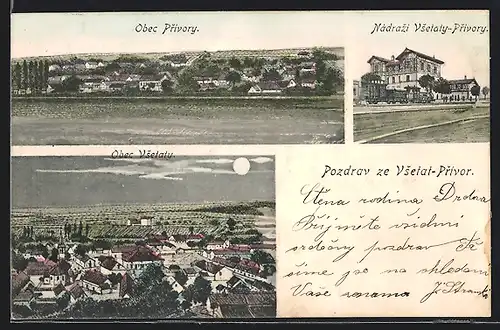 Obec Přívory.
Nádraží Všetaty-Přívory.
Obec Všetaty.
Pozdrav ze Všetat-Přívor.
Ctěná rodina
Přijměte všichni
srdečný pozdrav
na shledanou
Vaše